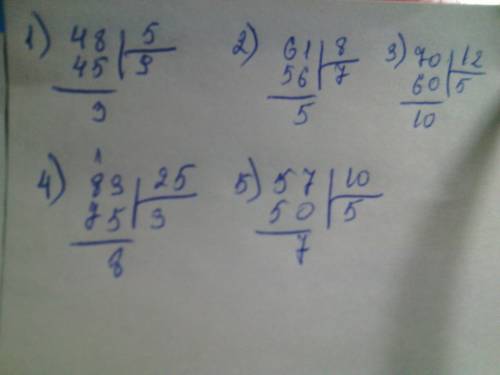 1) 48 | 5
45 | 9
3
2) 61 | 8
56 | 7
5
3) 70 | 12
60 | 5
10
4) 83 | 25
75 | 3
8
5) 57 | 10
50 | 5
7